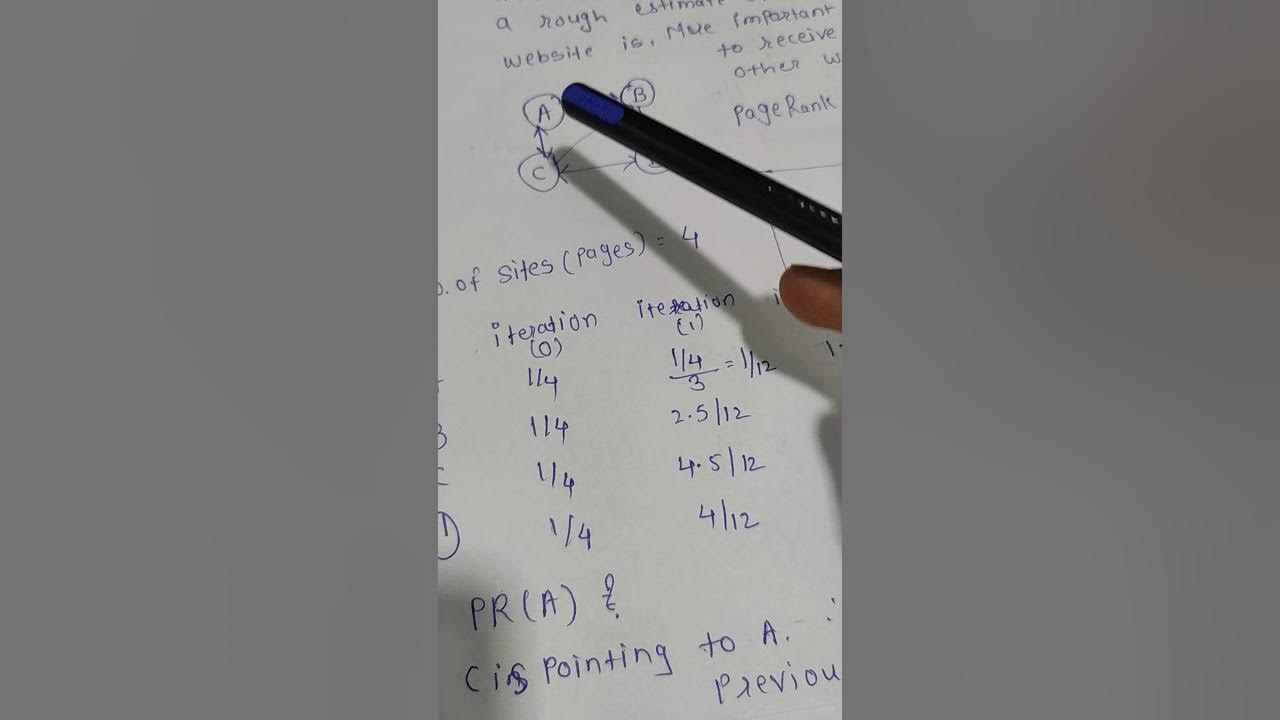 a rough estimate
website is. More important
to receive
other w
PageRank
A
B
C
. of sites (pages) = 4
iteration (0)
iteration (1)
1/4
1/4/3 = 1/12
1/4
2.5/12
1/4
4.5/12
1/4
4/12
PR(A) ?
C is pointing to A.
Previou